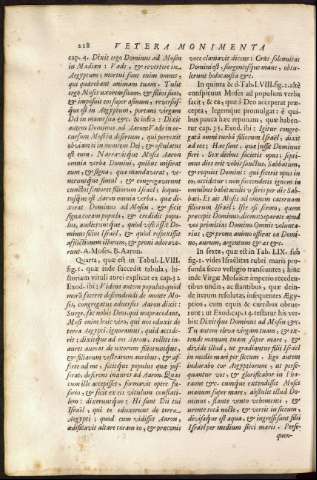 218 VETERA MONIMENTA
cap. 4. Dixit ergo Dominus ad Mosen
in Madian: Vade, & revertere in
Aegyptum; mortui sunt enim omnes,
qui quærebant animam tuam. Tulit
ergo Moses uxorem suam, & filios suos,
& imposuit eos super asinum, reversus-
que est in Aegyptum, portans virgam
Dei in manu sua &c. & infra: Dixit
autem Dominus ad Aaron Vade in oc-
cursum Mosi in desertum, qui perrexit
obviam ei in montem Dei, & osculatus
est eum. Narravitque Moses Aaron
omnia verba Domini, quibus miserat
eum, & signa, quæ mandaverat, ve-
neruntque simul, & congregaverunt
cunctos seniores filiorum Israel; loquu-
tusque est Aaron omnia verba, quæ di-
xerat Dominus ad Mosen, & fecit
signa coram populo, & credidit popu-
lus, audieruntque, quod visitasset Do-
minus filios Israel, & quod respexisset
afflictionem illorum, & proni adorave-
runt. A. Moses. B. Aaron.
Quarta, quæ est in Tabul. LVIII.
fig. 1. quæ inde succedit tabula, hi-
storiam vituli aurei explicat ex cap. 32
Exod. ibi: Videns autem populus quod
moră faceret descendendi de monte Mo-
ses, congregatus adversus Aaron dixit:
Surge, fac nobis Deos, qui nos præcedant,
Mosi enim huic viro, qui nos eduxit de
terra Aegypti ignoramus, quid accide-
rit: dixitque ad eos Aaron, tollite in-
aures aureas de uxorum filiorumque,
& filiarum vestrarum auribus, & af-
ferte ad me, fecitque populus quæ jus-
serat, deferens inaures ad Aaron. Quas
cum ille accepisset, formavit opere fu-
sorio, & fecit ex eis vitulum confla-
tilem: dixeruntque: Hi sunt Dii tui
Israel, qui te eduxerunt de terra
Aegypti: quod cum vidisset Aaron,
ædificavit altare coram eo, & præconis
voce clamavit dicens: Cras solemnitas
Domini est, surgentesque mane, obtu-
lerunt holocausta &c.
In quinta & 2. Tabul. LVIII. fig. 2. astē
antiquum Moses ad populum verba
facit, & ea, quæ à Deo acceperat præ-
cepta, legemque promulgat: è qui-
bus pauca hæc reperiun, quæ haben-
tur cap. 35. Exod. ibi: Igitur congre-
gata omni turba filiorum Israel, dixit
ad eos: Hæc sunt, quæ jussit Dominus
fieri. Sex diebus facietis opus; septi-
mus dies erit vobis sanctus, Sabbatum,
& requies Domini: qui fecerit opus in
eo, occidetur: non succendetis ignem in
omnibus habitaculis vestris per die Sab-
bati. Et ait Moses ad omnem catervam
filiorum Israel: Iste est sermo, quem
præcepit Dominus, dicens: separate apud
vos primitias Domino. Omnis volunta-
rius, & prono animo offerat eas Domi-
no, aurum, argentum & æs &c.
In sexta, quæ est in Tabu. LIX. sub
fig. 1. filios Israelitas rubri maris pro-
funda sicco vestigio transeuntes; hinc
inde Virgæ Mosaicæ imperio recedenti-
bus undis, ac stantibus, quæ dein-
de iterum resolutæ, insequentes Ægy-
ptios, cum equis & curribus obrue-
runt; ut Exod. cap. 14. testatur his ver-
bis: Dixitque Dominus ad Mosen &c.
Tu autem eleva virgam tuam, & ex-
tende manum tuam super mare, &
divide illud, ut gradiantur filii Israel
in medio mari per siccum: Ego autem
indurabo cor Aegyptiorum, ut perse-
quantur vos, & glorificabor in Pha-
raone &c. cumque extendisset Moses
manum super mare, abstulit illud Do-
minus, flante vento vehementi, &
urente tota nocte, & vertit in siccum,
divisaque est aqua, & ingressi sunt filii
Israel per medium sicci maris. Perse-
quen-